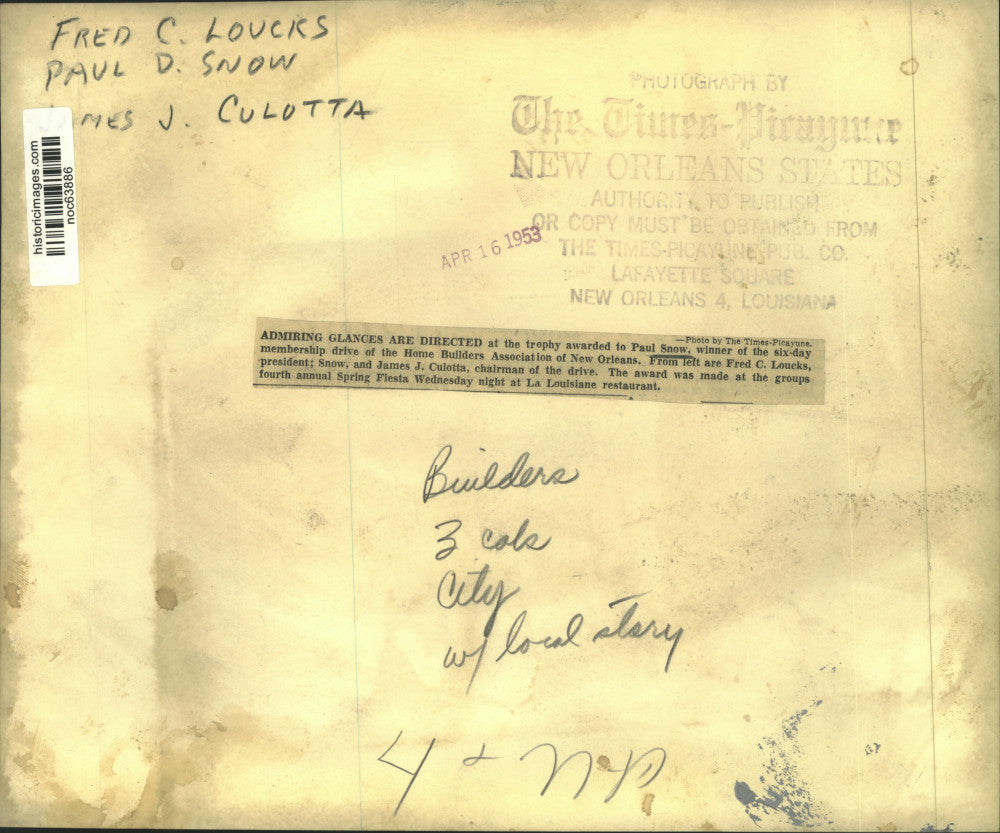 FRED C. LOUCKS
PAUL D. SNOW
MES J. CULOTTA
historicimages.com
noc63886
PHOTOGRAPH BY
The Times-Picayune
NEW ORLEANS STATES
AUTHORITY TO PUBLISH
OR COPY MUST BE OBTAINED FROM
THE TIMES-PICAYUNE PUB. CO.
LAFAYETTE SQUARE
NEW ORLEANS 4, LOUISIANA
APR 16 1953
—Photo by The Times-Picayune.
ADMIRING GLANCES ARE DIRECTED at the trophy awarded to Paul Snow, winner of the six-day
membership drive of the Home Builders Association of New Orleans. From left are Fred C. Loucks,
president; Snow, and James J. Culotta, chairman of the drive. The award was made at the groups
fourth annual Spring Fiesta Wednesday night at La Louisiane restaurant.
Builders
3 cols
City
w/ local story